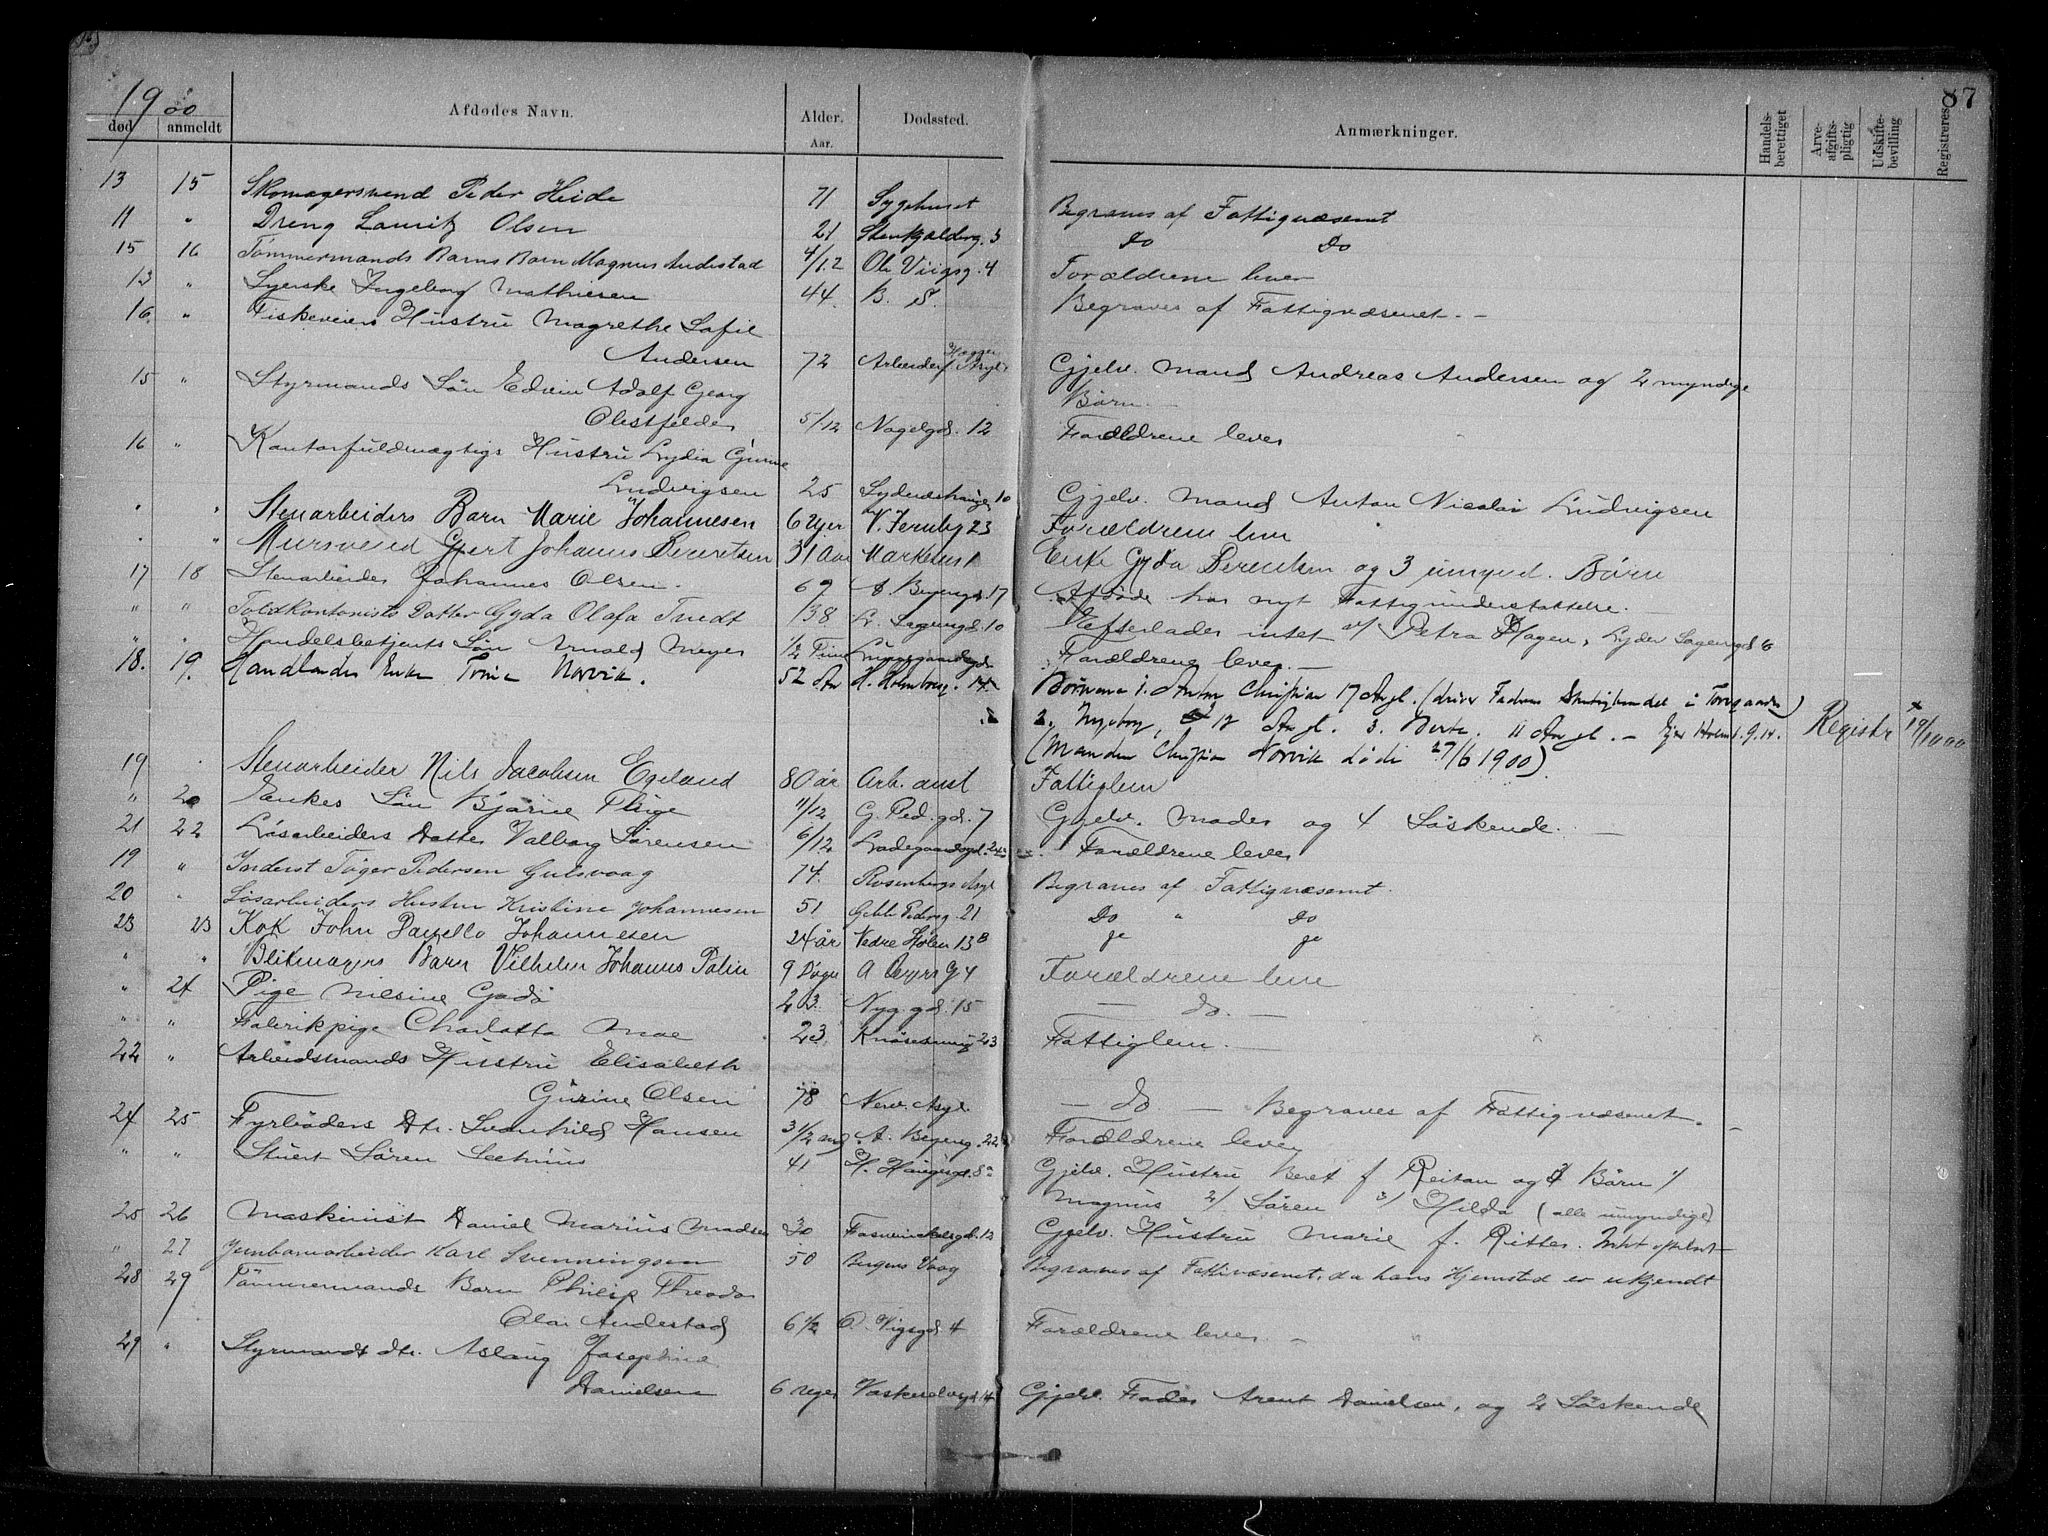 87
1900
død anmeldt Afdødes Navn. Alder. Aar. Dødssted. Anmærkninger. Handels-berettiget Arve-afgifts-pligtig Udskifte-bevilling Registreres
13 15 Skomagersvend Peder Heide 71 Sygehuset Begraves af Fattigvæsenet
11 " Dreng Lauritz Olsen 21 Stenkjelderg. 3 Do Do
15 16 Tømmermands Barn Magnus Andestad 4/12 Ole Viigsg. 4 Forældrene lever
13 " Syerske Ingeborg Mathiesen 44. B. S. Begraves af Fattigvæsenet. -
16. " Hustru Magrethe Sofie
Andersen 72 Asyl Gjelv. Mand Andreas Andersen og 2 myndige
15 " Styrmands Søn Edvin Adolf Georg Børn. -
Olestfelder 5/12 Nagelgd. 12 Forældrene lever
16 " Kontorfuldmægtigs Hustru Lydia
Ludvigsen 25 10 Gjelv. Mand Anton Nicolai Ludvigsen
" " Stenarbeiders Barn Marie Johannesen 6 Uger V. 23 Forældrene leve
" " Mursvend Gjert Johannes Berentsen 31 Aar Markeveien Enke Gyda Berentsen og 3 umynd. Børn
17 18 Stenarbeider Johannes Olsen. 69 17 Afdøde har nyt Fattigunderstøttelse.
" " Toldkontorists Datter Gyda Olafa Tundt 38 L. Sagengd. 10 Efterlader intet af Petra Hagen, Lyder Sagengd 6
" " Handelsbetjents Søn Arnold Meyer 1/2 Time Forældrene lever. -
18. 19. Handlendes Enke Tomine Norvik. 52 Aar H. Holmboesg. 14 Børnene 1. Anton Christian 17 Aar gl. (driver Fadrens i Torvgaarden)
2. Ingeborg, 12 Aar gl. 3. Berte. 11 Aar gl. - Registr 19/10 00
(Manden Christian Norvik døde 27/6 1900).
19 " Stenarbeider Nils Jacobsen Egeland 80 år Arb. anst Fattiglem
" 20 Enkes Søn Bjarne 11/12 G. Ped. gd. 7 Gjelv. Moder og 4 Søskende. -
21 22 Løsarbeiders Datter Valborg Sørensen 6/12 Ladegaardsgd. 24 Forældrene lever
19 " Inderst Tøger Pedersen Gulsvaag 74. Rosenbergs Asyl Begraves af Fattigvæsenet.
20 " Løsarbeiders Hustru Kristine Johannesen 51 21 Do " Do
23 23 Kok John Johannesen 24 år Nedre Stølen 13 B
" " Blikmagers Barn Vilhelm Johannes Palin 9 Døgn 4 Forældrene leve
" 24 Pige Nilsine 23. Nyg gd. 15 - do. -
" " Fabrikpige Charlotta Moe 23 23 Fattiglem. -
22 " Arbeidsmands Hustru Elisabeth
Gurine Olsen 78 Asyl - do - Begraves af Fattigvæsenet. -
24 25 Fyrbøders Dtr. Svanhild Hansen 3 1/2 22 Forældrene lever
" " Stuert Søren 41 H. Haugesgd. 8 Gjelv. Hustru Beret f Reitan og 3 Børn 1/
Magnus 2/ Søren 3/ Hilda (alle umyndige)
25 26 Maskinist Daniel Marius Madsen 30 12 Gjelv. Hustru Marie f. Ritter. Intet
" 27 Jernbanearbeider Karl Svenningsen 50 Bergens Vaag Begraves af Fattigvæsenet, da hans Hjemsted er ukjendt
28 29 Tømmermands Barn Philip Theodor
Olai Andestad 6 1/2 O. Vigsgd. 4 Forældrene lever. -
29 " Styrmands dtr. Aslaug Josephine
Danielsen 6 uger 14 Gjelv. Fader Arent Danielsen, og 2 Søskende